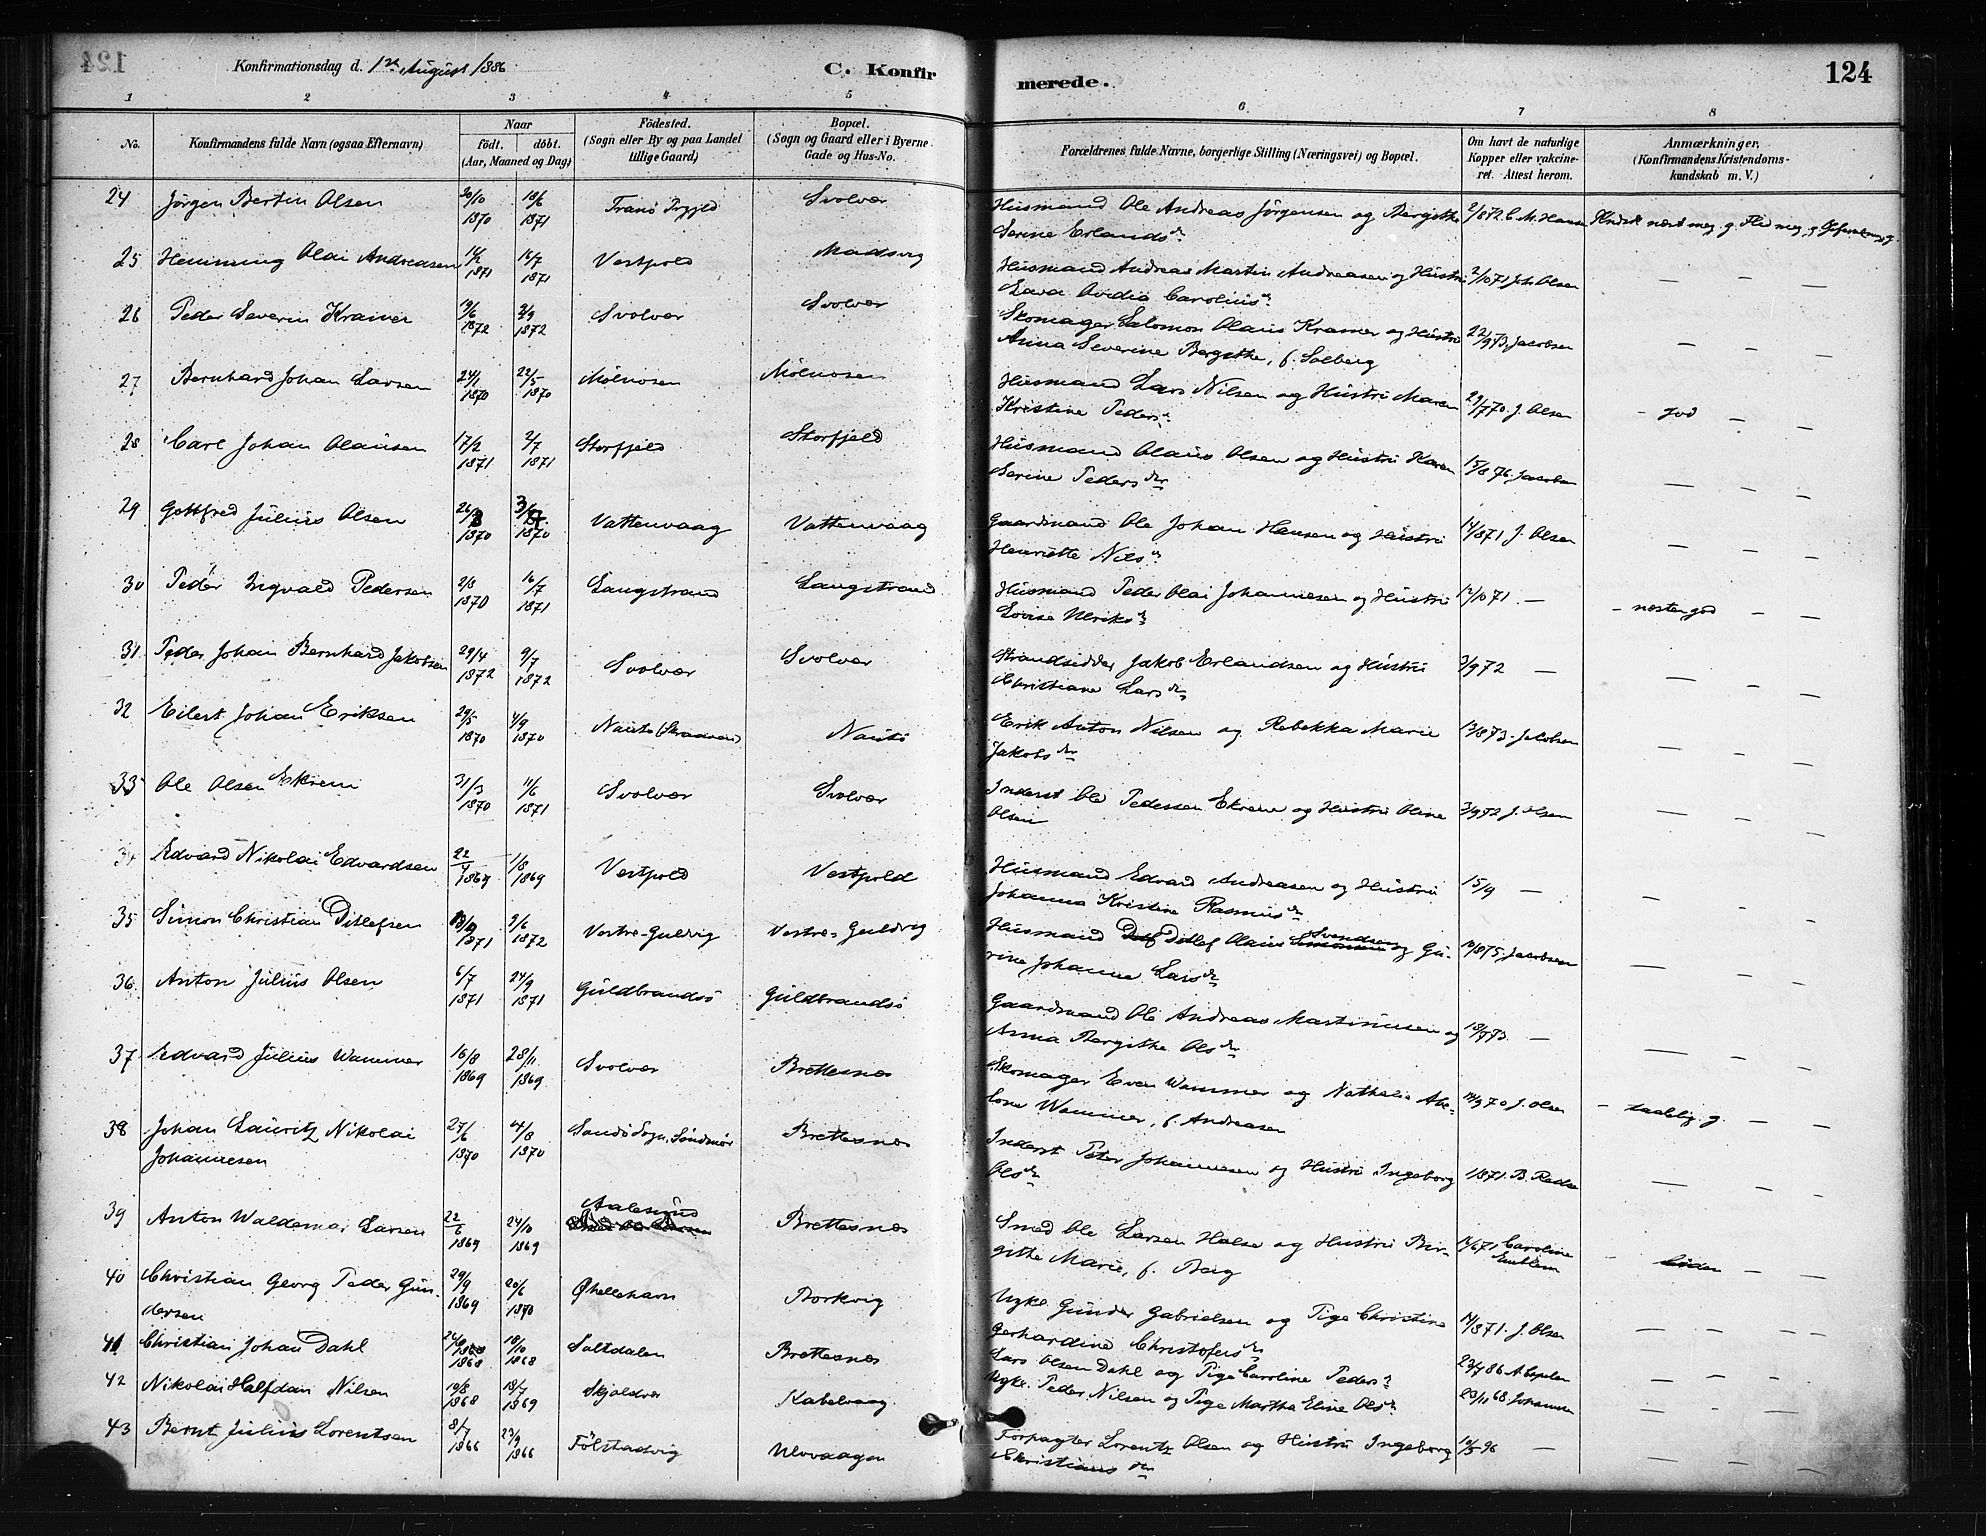 Konfirmationsdag d. 1ste August 1886
C. Konfir
merede.
124
1 2 3 4 5 6 7 8
No.
Konfirmandens fulde Navn (ogsaa Efternavn)
Naar
födt. döbt.
(Aar, Maaned og Dag)
Födested.
(Sogn eller By og paa Landet
tillige Gaard)
Bopæl.
(Sogn og Gaard eller i Byerne
Gade og Hus-No.
Forældrenes fulde Navne, borgerlige Stilling (Næringsvei) og Bopæl.
Om havt de naturlige
Kopper eller vakcine-
ret. Attest herom.
Anmærkninger,
(Konfirmandens Kristendoms-
kundskab m. V.)
24 Jörgen Bertin Olsen 30/10 1870 18/6 1871 Tranö Svolvær
Husmand Ole Andreas Jörgensen og Bergithe
Serine Erlandsdr
25 Henning Olai Andreasen 1871 16/7 1871 Vestpold Madsvig
Husmand Andreas Martin Andreasen og Hustru 2/10 71 Joh. Olsen
Lava Ovidia Caroliusdr
26 Peder Severin Kramer 19/6 1872 2/9 1872 Svolvær Svolvær
Skomager Salomon Olaus Kramer og Hustru 22/9 73, Jacobsen
Anna Severine Bergithe, f. Solberg
27 Bernhard Johan Larsen 24/1 1870 22/5 1870 Mölnosen Mölnosen
Husmand Lars Nilsen og Hustru Maren 29/7 70. J. Olsen - god — —
Kristine Pedersdr
28 Carl Johan Olausen 17/2 1871 2/7 1871 Storfjeld Storfjeld
Husmand Olaus Olsen og Hustru Karen 15/8 76, Jacobsen
Serine Pedersdtr
29 Gottfred Julius Olsen 26/3 1870 3/4 1870 Vattenvaag Vattenvaag
Gaardmand Ole Johan Hansen og Hustru 14/8 71 J. Olsen
Henriette Nilsdr
30 Peder Ingvald Pedersen 2/8 1870 16/7 1871 Langstrand Langstrand
Husmand Peder Olai Johannesen og Hustru 12/10 71. — - næsten god — —
Lovise Ulriksdr
31 Peder Johan Bernhard Jakobsen 29/4 1872 9/7 1872 Svolvær Svolvær
Strandsidder Jakob Erlandsen og Hustru 3/9 72 —
Christiane Larsdr
32 Eilert Johan Eriksen 29/5 1870 4/9 1870 Nautö (Skraaven) Nautö
Erik Anton Nilsen og Rebekka Marie 13/8 73. Jacobsen
Jakobsdtr
33 Ole Olsen Ekrem 31/3 1870 11/6 1871 Svolvær Svolvær
Inderst Ole Pedersen Ekrem og Hustru Oline 3/9 72 J. Olsen
Olsen
34 Edvard Nikolai Edvardsen 22/4 1869 1/8 1869 Vestpold Vestpold
Husmand Edvard Andreasen og Hustru 15/9 —
Johanna Kristine Rasmusdr
35 Simon Christian Ditlefsen 1871 2/6 1872 Vestre-Guldvig Vestre-Guldvig
Svendsen
Husmand Ditlef Olaus Simonsen og Gu- 18/8 75, Jacobsen
rine Johanne Larsdr
36 Anton Julius Olsen 6/7 1871 24/9 1871 Guldbrandsö Guldbrandsö
Gaardmand Ole Andreas Martinusen og —
Anna Bergithe Olsdr
37 Edvard Julius Wammer 16/8 1869 28/11 1869 Svolvær Brettesnes
Skomager Even Wammer og Nathalie Abe- 14/9 70 J. Olsen - taalelig g. — —
lone Wammer, f. Andreasen
38 Johan Lauritz Nikolai 27/6 1870 4/8 1870 Sandö Sogn, Söndmör Brettesnes
Johannesen
Inderst Peter Johannesen og Hustru Ingeborg 1871. B.
Olsdr
39 Anton Waldemar Larsen 22/6 1869 24/10 1869 Aalesund Brettesnes
Smed Ole Larsen Halse og Hustru Bir- 14/6 71 Caroline
Emblem - liden — —
githe Marie, f. Berg
40 Christian Georg Peder Gun- 29/9 1869 20/6 1870 Öhellehavn Borkvig
dersen
Ugke. Gunder Gabrielsen og Pige Christine 14/8 71. J. Olsen
Gerhardine Christofersdr
41 Christian Johan Dahl 24/9 1868 18/10 1868 Saltdalen Brettesnes
Lars Olsen Dahl og Pige Caroline Pedersdr 23/7 86
42 Nikolai Halfdan Nilsen 19/8 1868 18/7 1869 Skjoldvær Kabelvaag
Ugke. Peder Nilsen og Pige Martha Eline Olsdr 23/11 68. Johannesen
43 Bernt Julius Lorentsen 8/7 1866 23/9 1866 Fölstadvig Ulvvaagen
Forpagter Lorentz Olsen og Hustru Ingeborg —
Christiansdtr